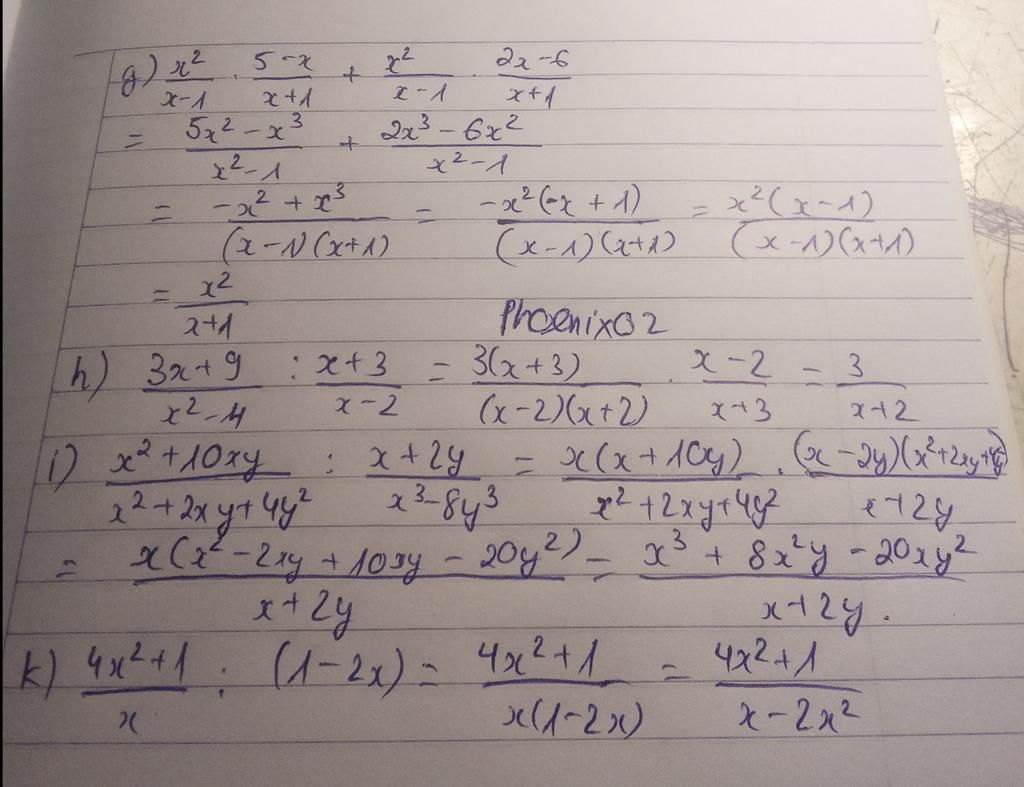 g) x²/(x-1) · (5-x)/(x+1) + x²/(x-1) · (2x-6)/(x+1)
= (5x²-x³)/(x²-1) + (2x³-6x²)/(x²-1)
= (-x²+x³)/((x-1)(x+1)) = (-x²(-x+1))/((x-1)(x+1)) = (x²(x-1))/((x-1)(x+1))
= x²/(x+1)
Phoenix02
h) (3x+9)/(x²-4) : (x+3)/(x-2) = (3(x+3))/((x-2)(x+2)) · (x-2)/(x+3) = 3/(x+2)
i) (x²+10xy)/(x²+2xy+4y²) : (x+2y)/(x³-8y³) = (x(x+10y))/(x²+2xy+4y²) · ((x-2y)(x²+2xy+4y²))/(x+2y)
= (x(x²-2xy+10xy-20y²))/(x+2y) = (x³+8x²y-20xy²)/(x+2y).
k) (4x²+1)/x : (1-2x) = (4x²+1)/(x(1-2x)) = (4x²+1)/(x-2x²)